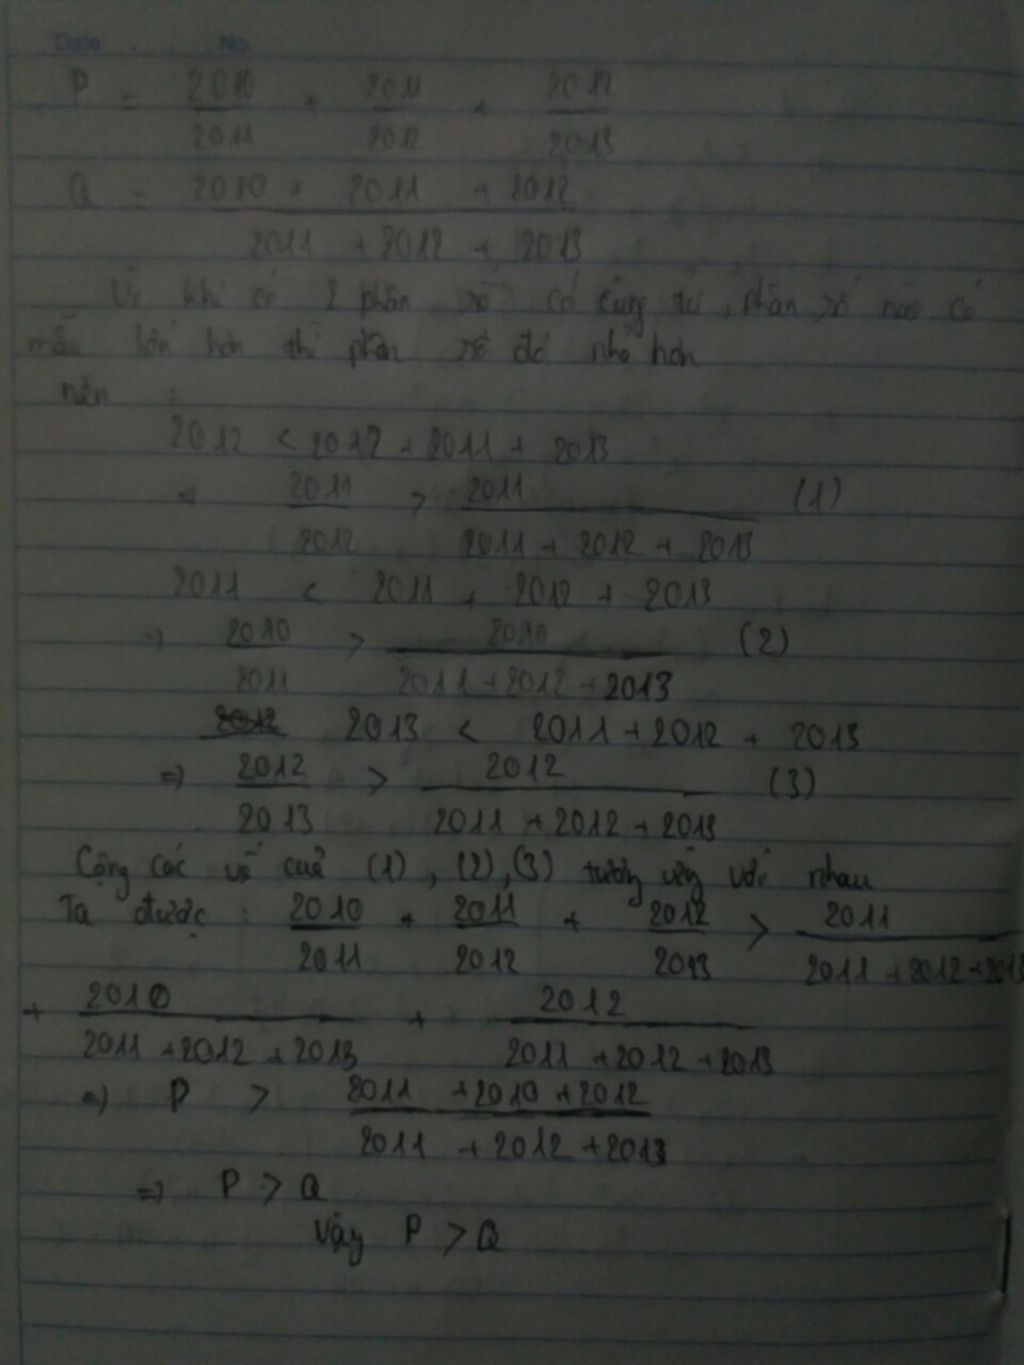 Date No.
P = 2010/2011 + 2011/2012 + 2012/2013
Q = (2010 + 2011 + 2012)/(2011 + 2012 + 2013)
Vì khi có 2 phân số có cùng tử, phân số nào có
mẫu lớn hơn thì phân số đó nhỏ hơn
nên :
2012 < 2012 + 2011 + 2013
=> 2011/2012 > 2011/(2011 + 2012 + 2013) (1)
2011 < 2011 + 2012 + 2013
=> 2010/2011 > 2010/(2011 + 2012 + 2013) (2)
2013 < 2011 + 2012 + 2013
=> 2012/2013 > 2012/(2011 + 2012 + 2013) (3)
Cộng các vế của (1), (2), (3) tương ứng với nhau
Ta được : 2010/2011 + 2011/2012 + 2012/2013 > 2011/(2011 + 2012 + 2013)
+ 2010/(2011 + 2012 + 2013) + 2012/(2011 + 2012 + 2013)
=> P > (2011 + 2010 + 2012)/(2011 + 2012 + 2013)
=> P > Q
Vậy P > Q